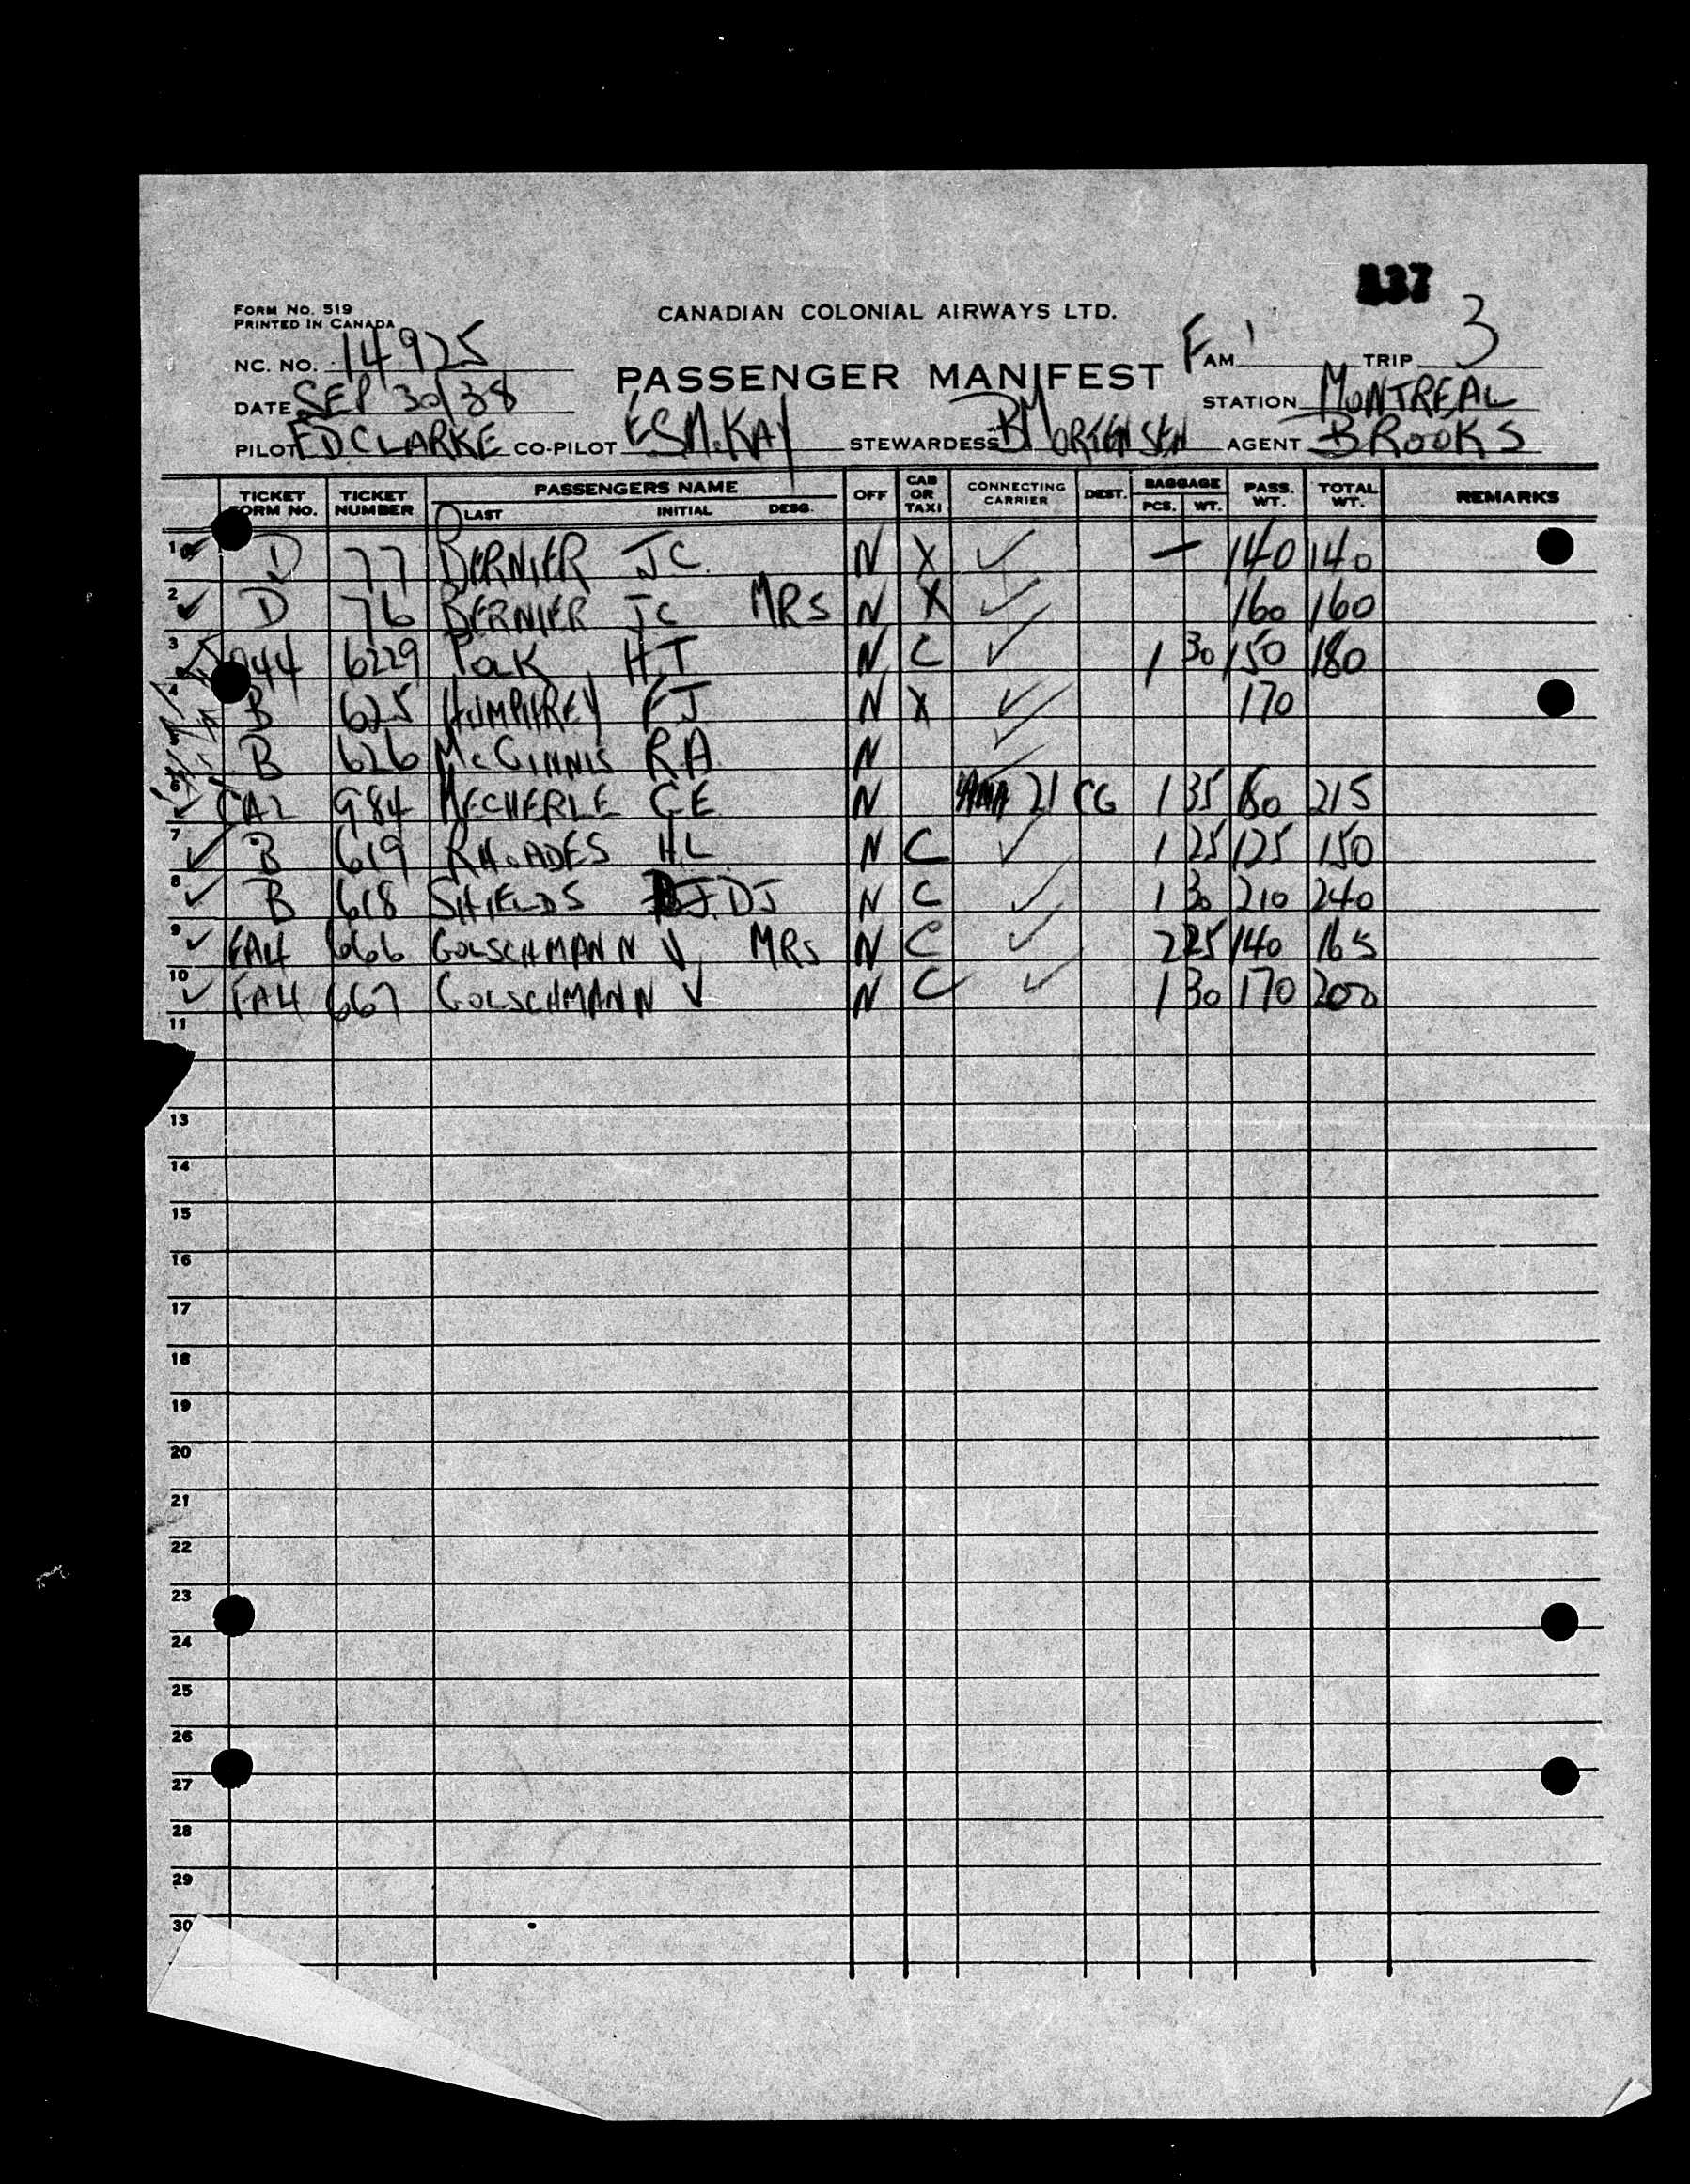 137
FORM NO. 519
PRINTED IN CANADA
CANADIAN COLONIAL AIRWAYS LTD.
NC. NO. 14925
PASSENGER MANIFEST
FAM 1 TRIP 3
DATE SEP 30/38
STATION MONTREAL
PILOT ED CLARKE CO-PILOT ES McKAY STEWARDESS B MORTENSEN AGENT BROOKS
TICKET FORM NO. TICKET NUMBER PASSENGERS NAME OFF CAB OR TAXI CONNECTING CARRIER DEST. BAGGAGE PASS. WT. TOTAL WT. REMARKS
LAST INITIAL DESG. PCS. WT.
1 ✓ D 77 BERNIER JC N X ✓ — 140 140
2 ✓ D 76 BERNIER JC MRS N X ✓ 160 160
3 044 6229 POLK HT N C ✓ 1 30 150 180
4 B 625 HUMPHREY FJ N X ✓ 170
5 B 626 McGINNIS RA N ✓
6 ✓ CA2 984 MECHERLE GE N 21 CG 1 35 180 215
7 ✓ B 619 RHOADES HL N C ✓ 1 25 125 150
8 ✓ B 618 SHIELDS DJ N C ✓ 1 30 210 240
9 ✓ FA4 666 GOLSCHMANN V MRS N C ✓ 2 25 140 165
10 ✓ FA4 667 GOLSCHMANN V N C ✓ 1 30 170 200
11
13
14
15
16
17
18
19
20
21
22
23
24
25
26
27
28
29
30